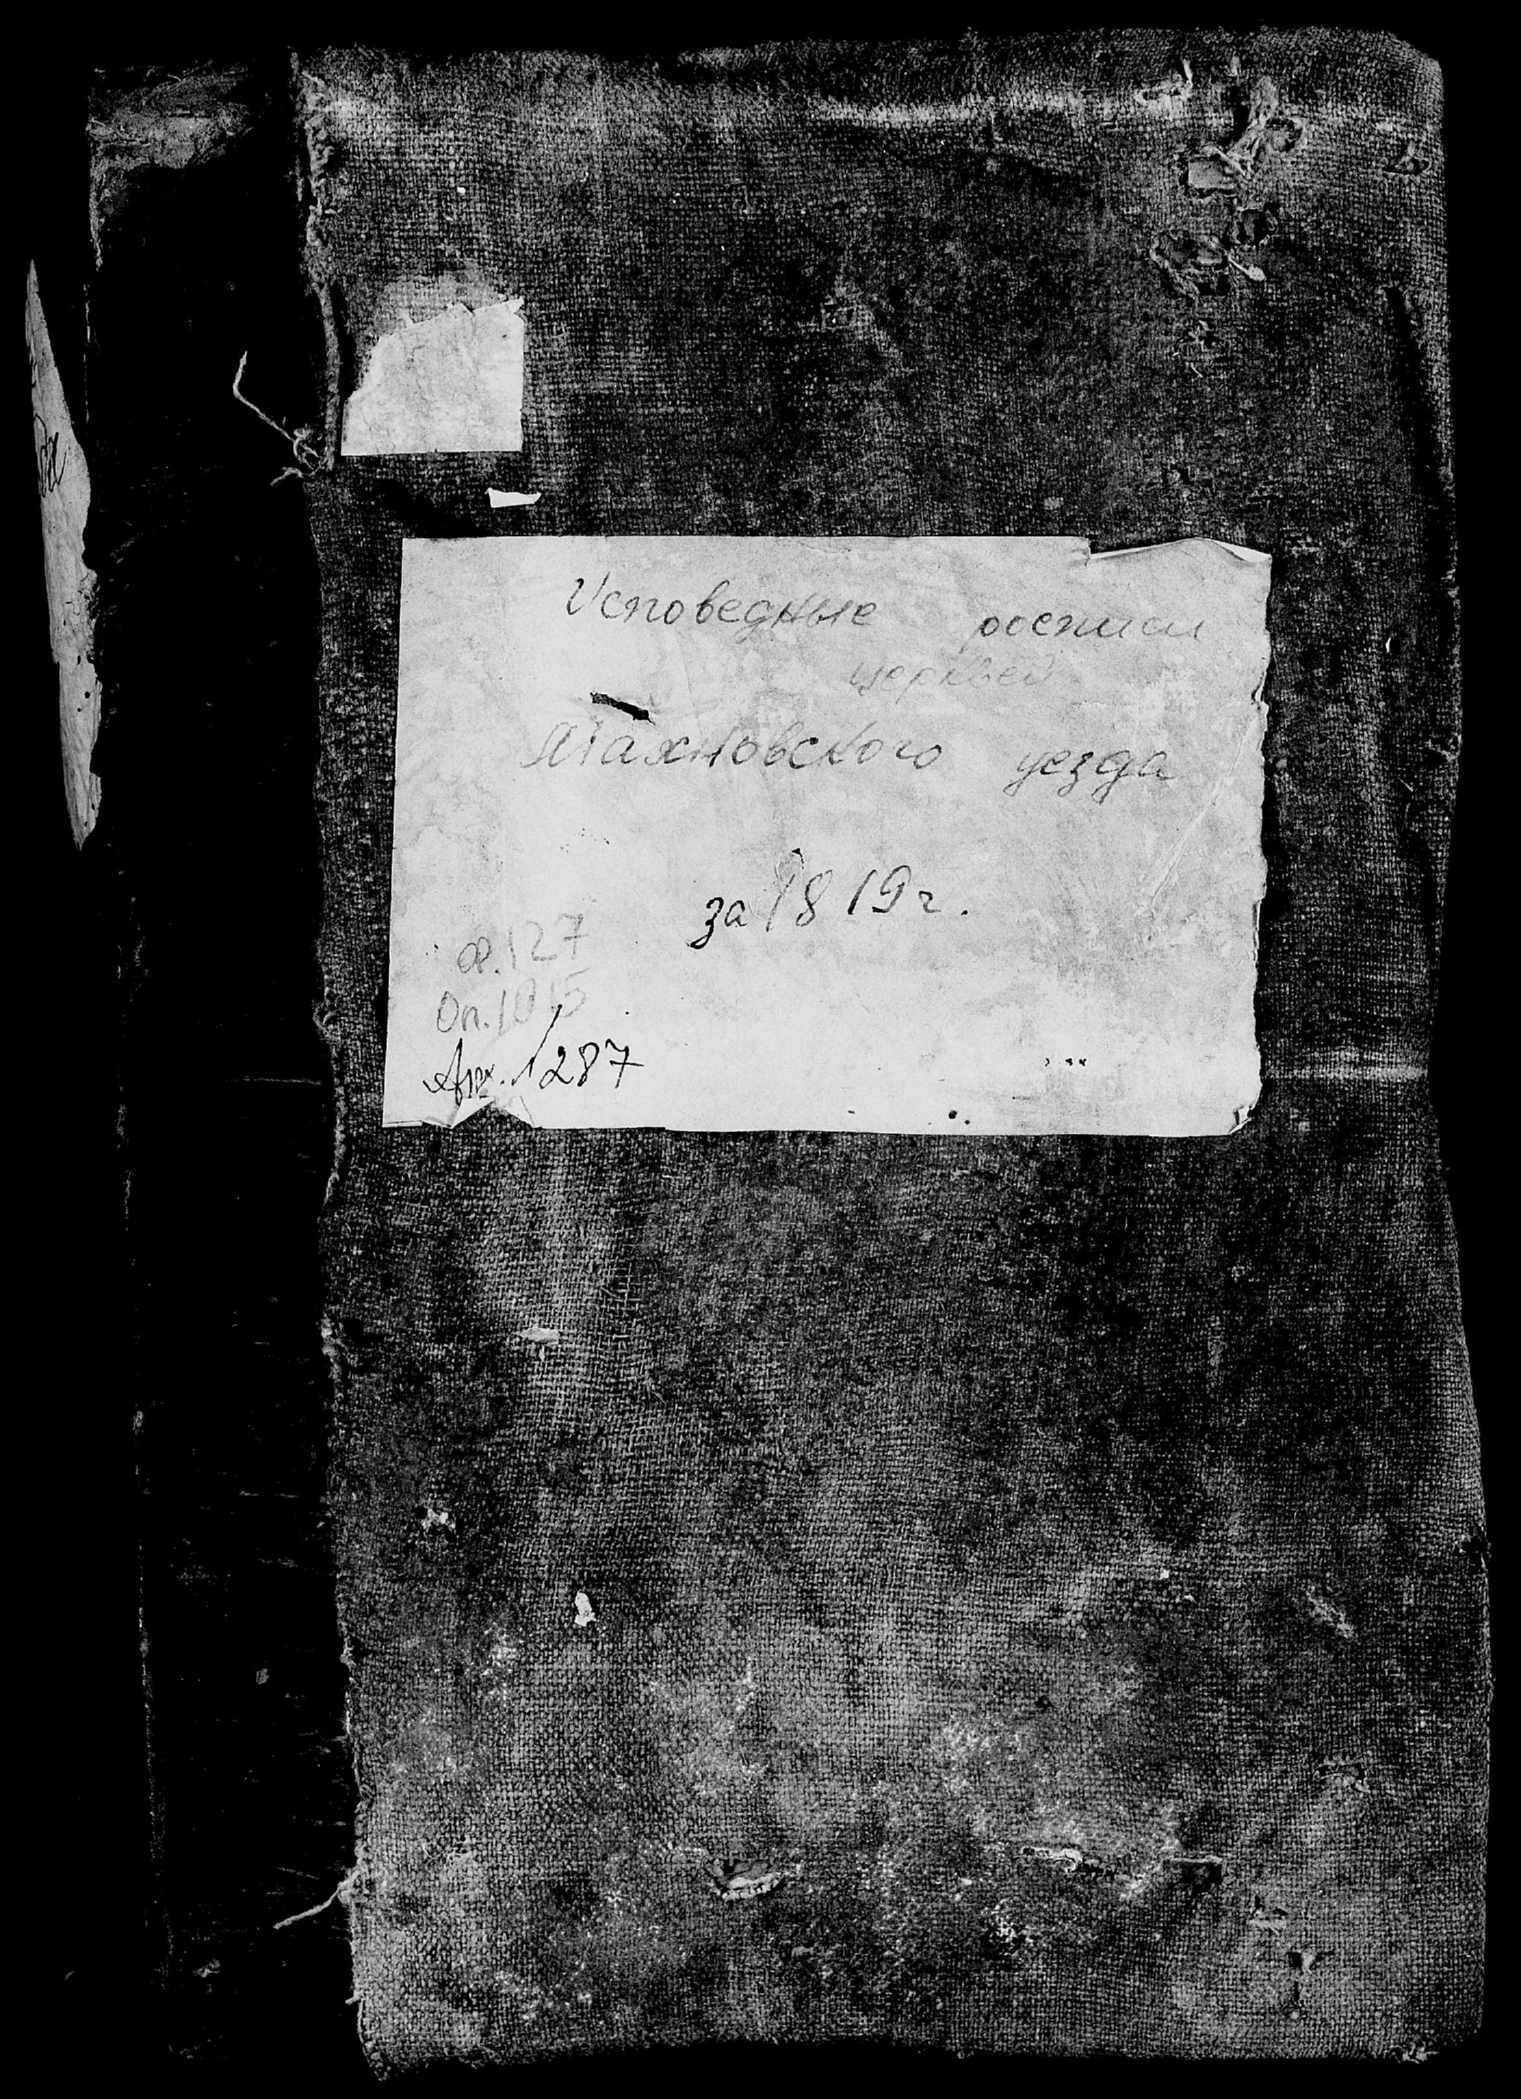 Исповедные росписи
церквей
Махновского уезда
за 1819 г.
ф. 127
Оп. 1015
Арх. 1287